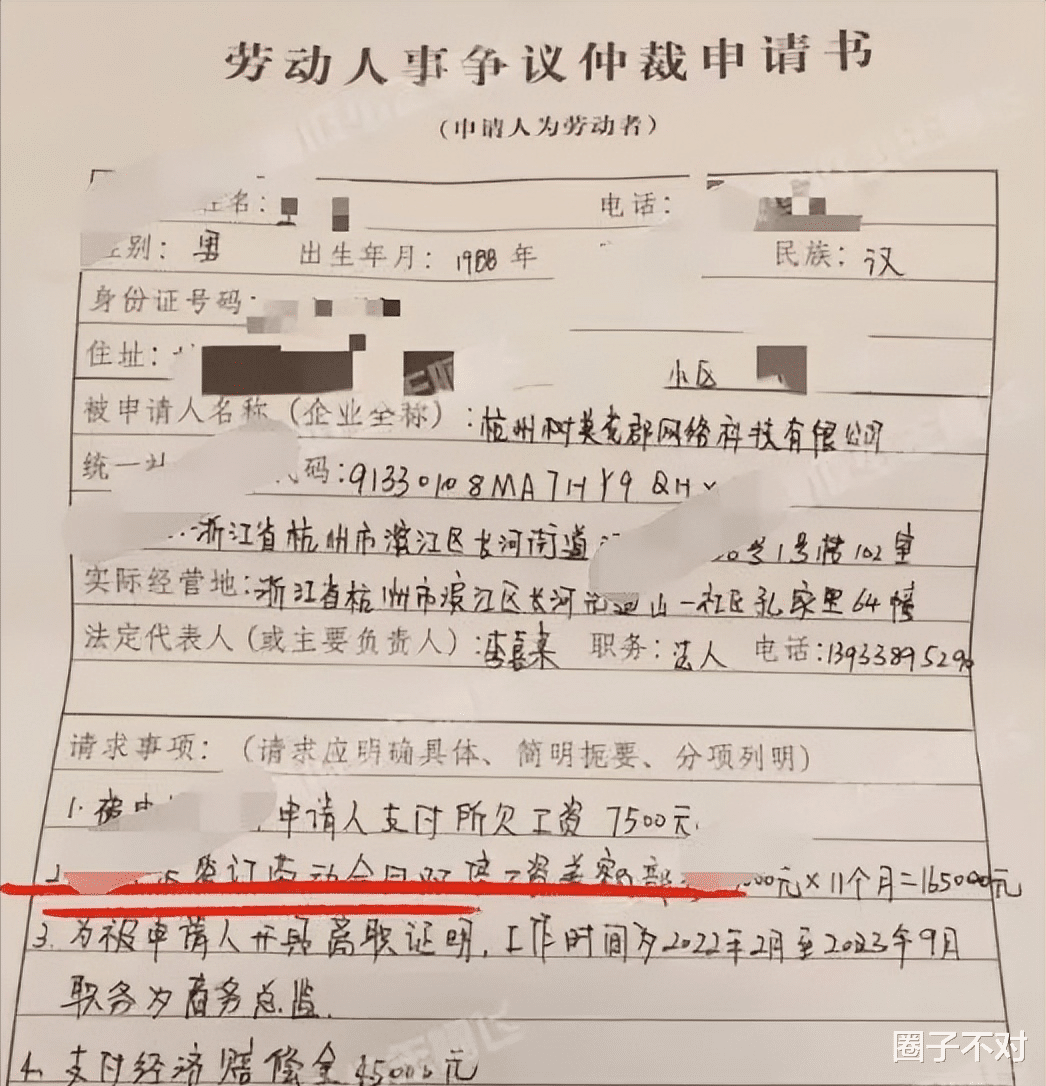 劳动人事争议仲裁申请书
(申请人为劳动者)
姓名: 电话:
性别: 男 出生年月: 1988年 民族: 汉
身份证号码:
住址: 小区
被申请人名称(企业全称): 杭州树英戈郡网络科技有限公司
统一社 代码: 91330108MA7HY9QH
浙江省杭州市滨江区长河街道 0号1号楼102室
实际经营地: 浙江省杭州市滨江区长河 山一社区孔家里64幢
法定代表人(或主要负责人): 李嘉来 职务: 法人 电话: 1393389529
请求事项: (请求应明确具体、简明扼要、分项列明)
1. 被申 申请人支付所欠工资 7500元
2. 签订劳动合同 工资差额部 000元×11个月=165000元
3. 为被申请人开具离职证明, 工作时间为2022年2月至2023年9月
职务为商务总监.
4. 支付经济赔偿金 45000元
圈子不对